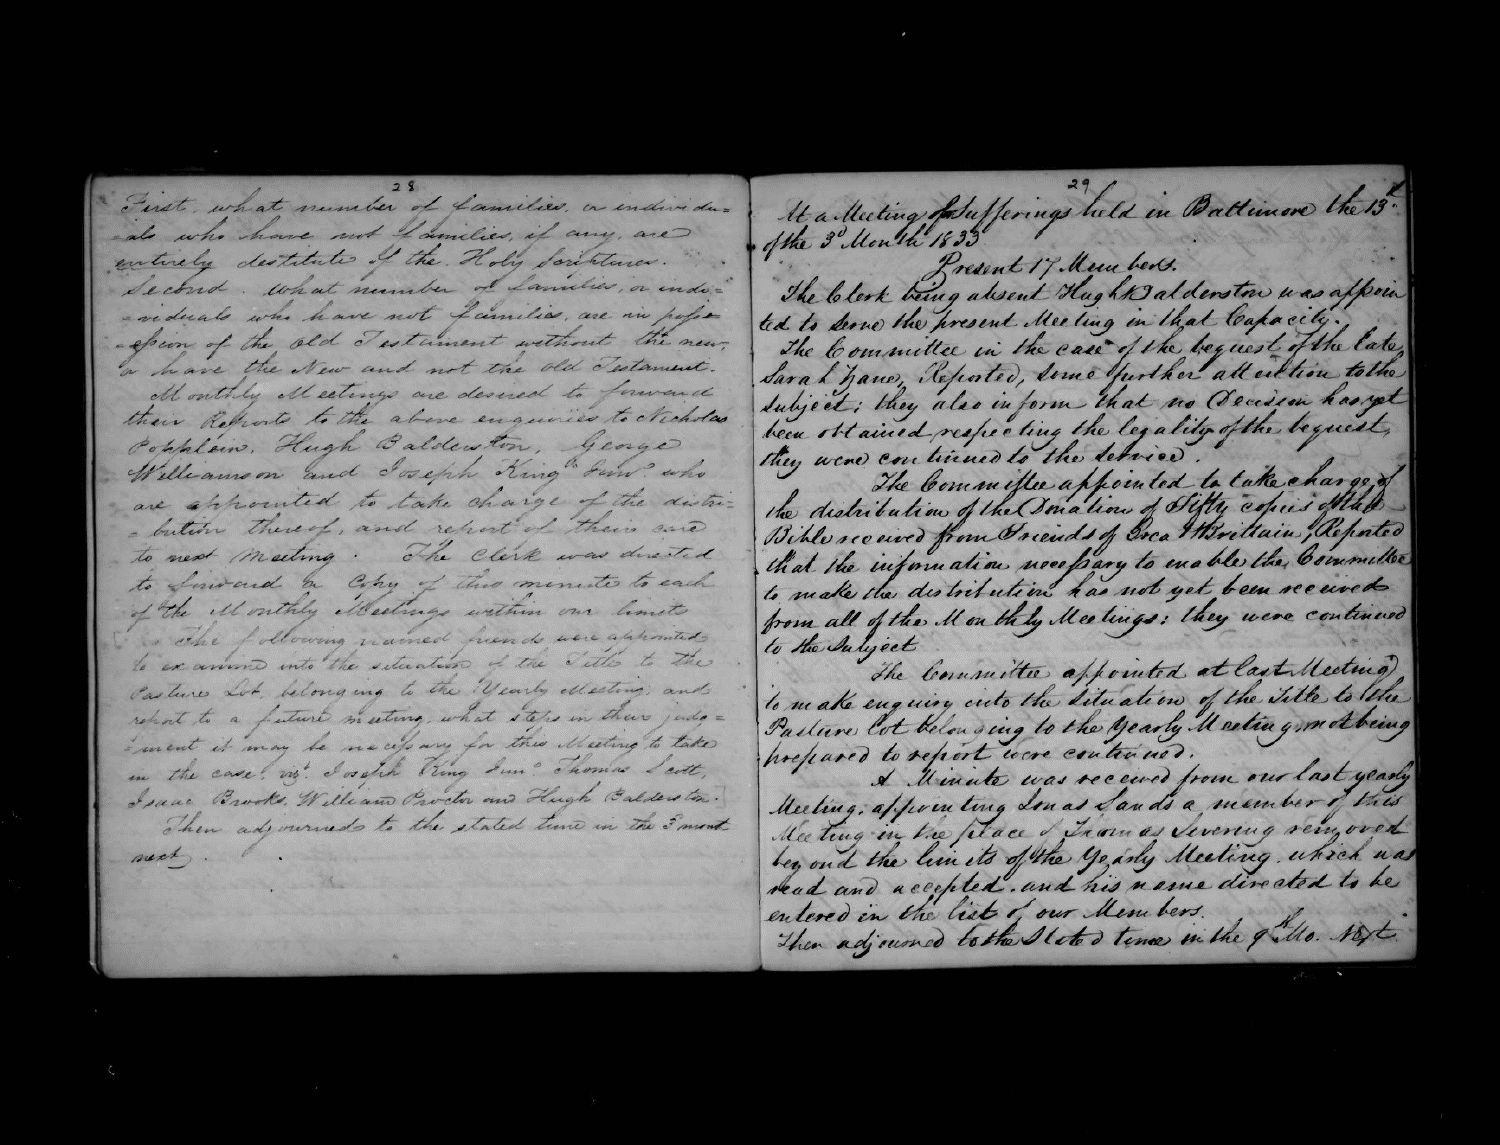 28
First. what number of families, or individu=
=als who have not families, if any, are
entirely destitute of the Holy Scriptures.
Second. What number of families, or indi=
=viduals who have not families, are in posse
=ssion of the Old Testament without the new,
or have the New and not the Old Testament.
Monthly Meetings are desired to forward
their Reports to the above enquiries to Nicholas
Popplein, Hugh Balderston, George
Williamson and Joseph King Junr. who
are appointed to take charge of the distri=
=bution thereof, and report of their care
to next Meeting. The Clerk was directed
to forward a Copy of this minute to each
of the Monthly Meetings within our limits
The following named friends were appointed
to examine into the situation of the Title to the
Pasture Lot, belonging to the Yearly Meeting, and
report to a future meeting, what steps in their judg=
=ment it may be necessary for this Meeting to take
in the case, vizt. Joseph King Junr. Thomas Scott,
Isaac Brooks, William Proctor and Hugh Balderston.
Then adjourned to the stated time in the 3d month
next.
29
At a Meeting for Sufferings held in Baltimore the 13th.
of the 3d Month 1833
Present 17 Members.
The Clerk being absent Hugh Balderston was appoin
ted to serve the present Meeting in that Capacity.
The Committee in the case of the bequest of the late
Sarah Zane, Reported, some further attention to the
subject; they also inform that no Decision has yet
been obtained respecting the legality of the bequest,
they were continued to the service.
The Committee appointed to take charge of
the distribution of the Donation of Fifty copies of the
Bible received from Friends of Great Brittain, Reported
that the information necessary to enable the Committee
to make the distribution has not yet been received
from all of the Monthly Meetings: they were continued
to the Subject
The Committee appointed at last Meeting
to make enquiry into the Situation of the Title to the
Pasture lot belonging to the Yearly Meeting, not being
prepared to report were continued.
A Minute was received from our last yearly
Meeting, appointing Jonas Sands a member of this
Meeting in the place of Thomas Levering removed
beyond the limits of the Yearly Meeting. which was
read and accepted. and his name directed to be
entered in the list of our Members.
Then adjourned to the Stated time in the 9th Mo. Next